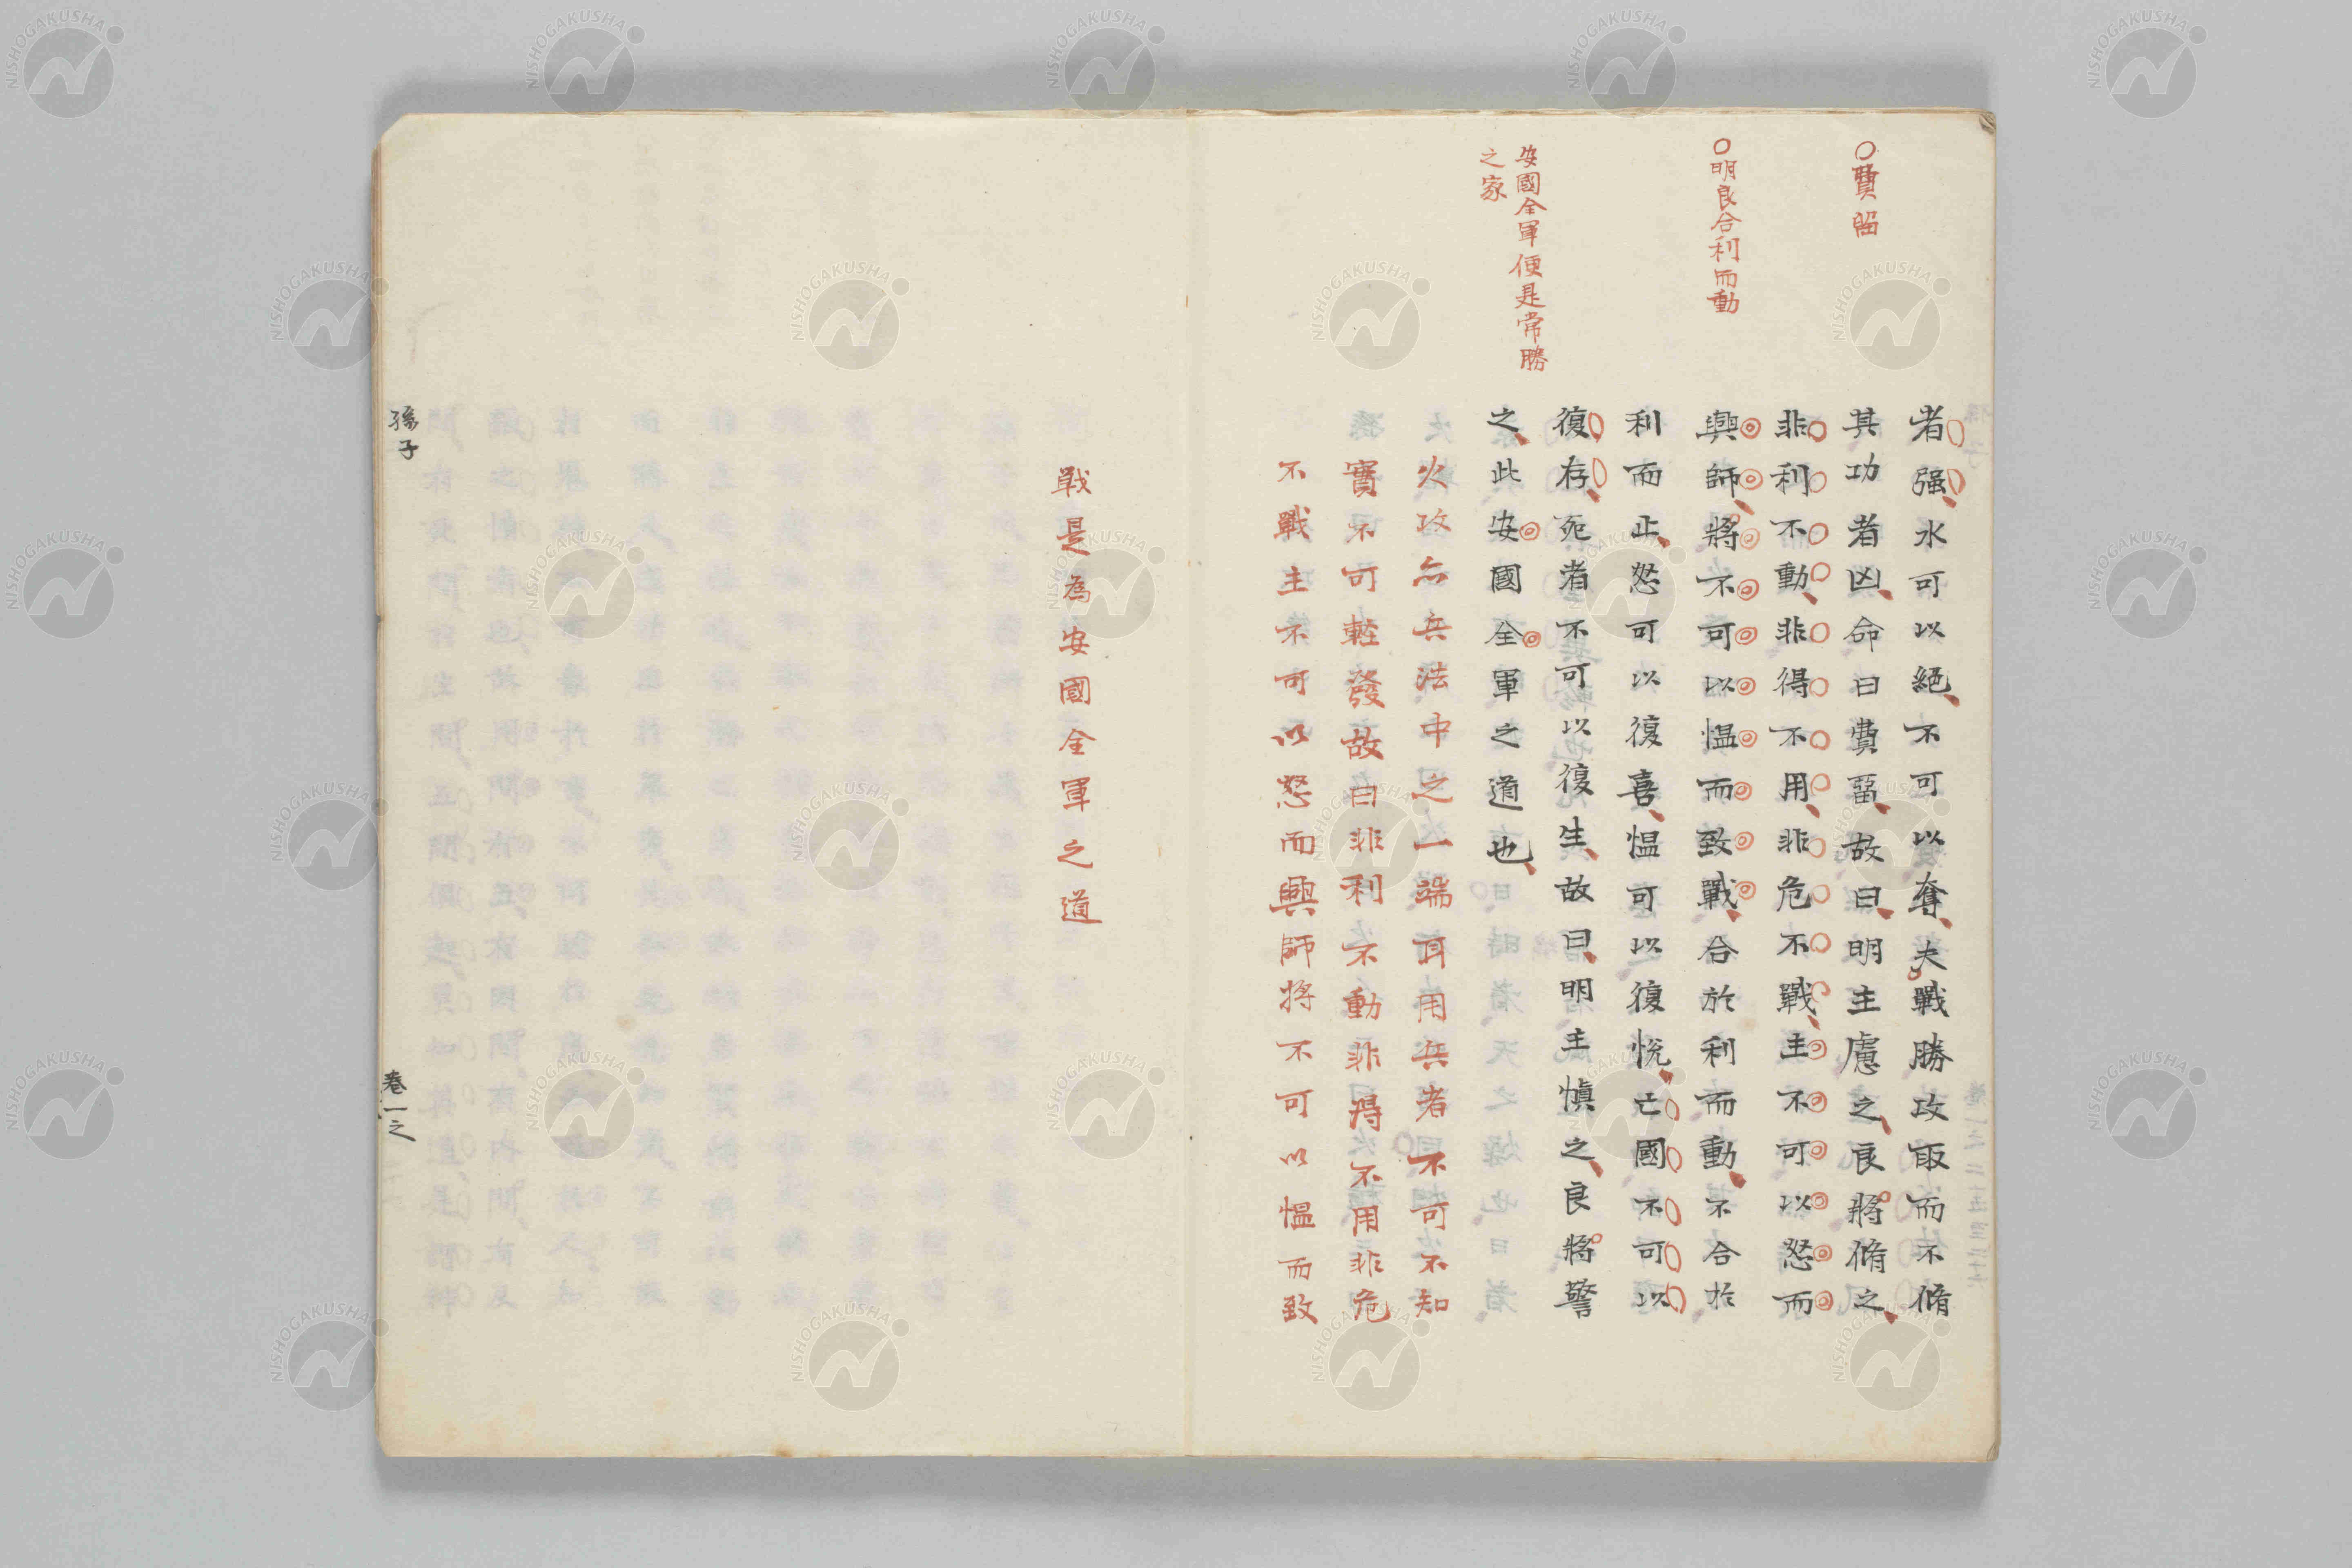 〇費畱
〇明良合利而動
安國全軍便是常勝
之家
者强水可以絕不可以奪夫戰勝攻取而不脩
其功者凶命曰費畱故曰明主慮之良將脩之
非利不動非得不用非危不戰主不可以怒而
興師將不可以慍而致戰合於利而動不合於
利而止怒可以復喜慍可以復悅亡國不可以
復存死者不可以復生故曰明主慎之良將警
之此安國全軍之道也
火攻亦兵法中之一端耳用兵者不可不知
實不可輕發故曰非利不動非得不用非危
不戰主不可以怒而興師將不可以慍而致
戰是為安國全軍之道
孫子
卷一之
NISHOGAKUSHA